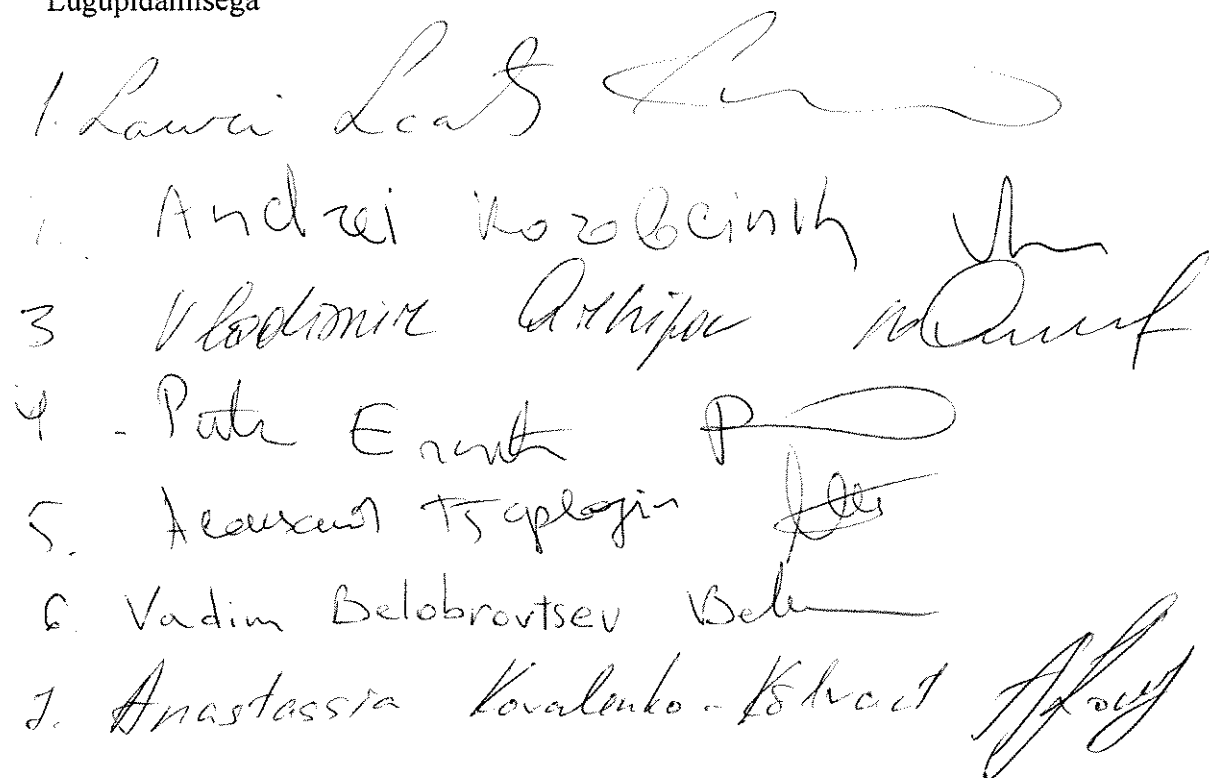 Lugupidamisega
1. Lauri Laats
Andrei Korobeinik
3 Vladimir Arhipov
4 - Peeter Ernits
5. Aleksandr Tšaplõgin
6. Vadim Belobrovtsev
7. Anastassia Kovalenko-Kõlvart